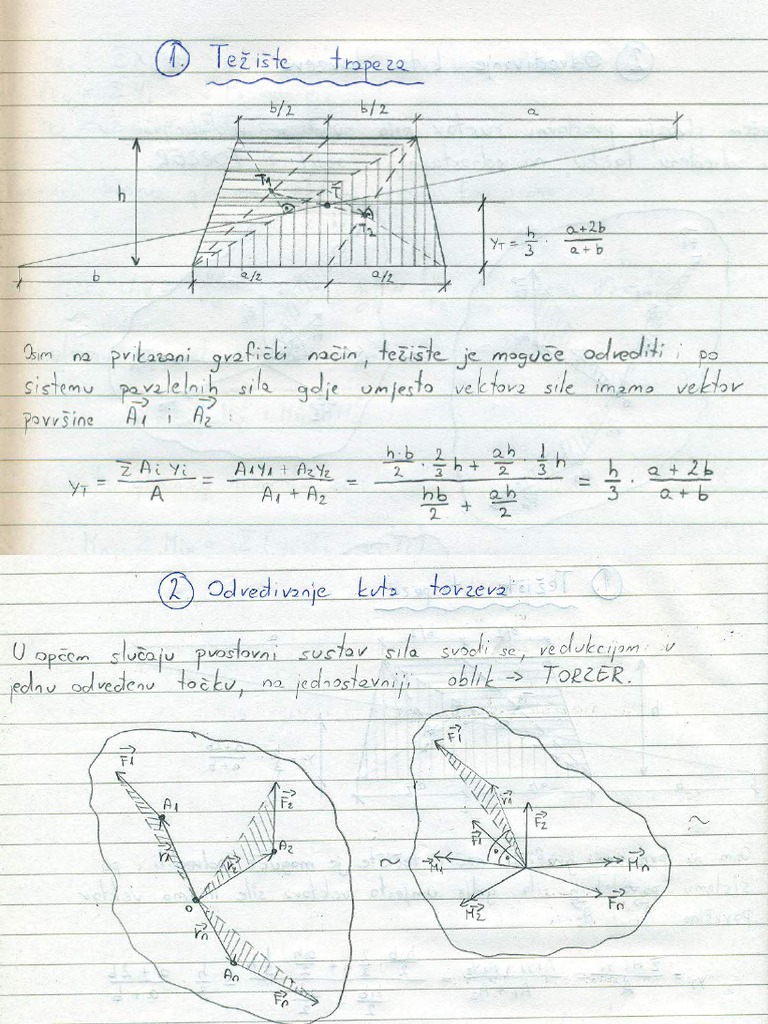 1. Težište trapeza
b/2 b/2 a
h
T1 T T2
yT = h/3 · (a+2b)/(a+b)
b a/2 a/2
Osim na prikazani grafički način, težište je moguće odrediti i po
sistemu paralelnih sila gdje umjesto vektora sile imamo vektor
površine A⃗1 i A⃗2 .
yT = Σ Ai yi / A = (A1y1 + A2y2)/(A1 + A2) = (h·b/2 · 2/3 h + ah/2 · 1/3 h)/(hb/2 + ah/2) = h/3 · (a + 2b)/(a + b)
2 Određivanje kuta torzera
U općem slučaju prostorni sustav sila svodi se, redukcijom u
jednu određenu točku, na jednostavniji oblik → TORZER.
F⃗1 A1 r1 F⃗2 A2 r⃗2 O r⃗n An F⃗n
~
F⃗1 r⃗1 F⃗2 F⃗1 M⃗1 M⃗n M⃗2 F⃗n
~